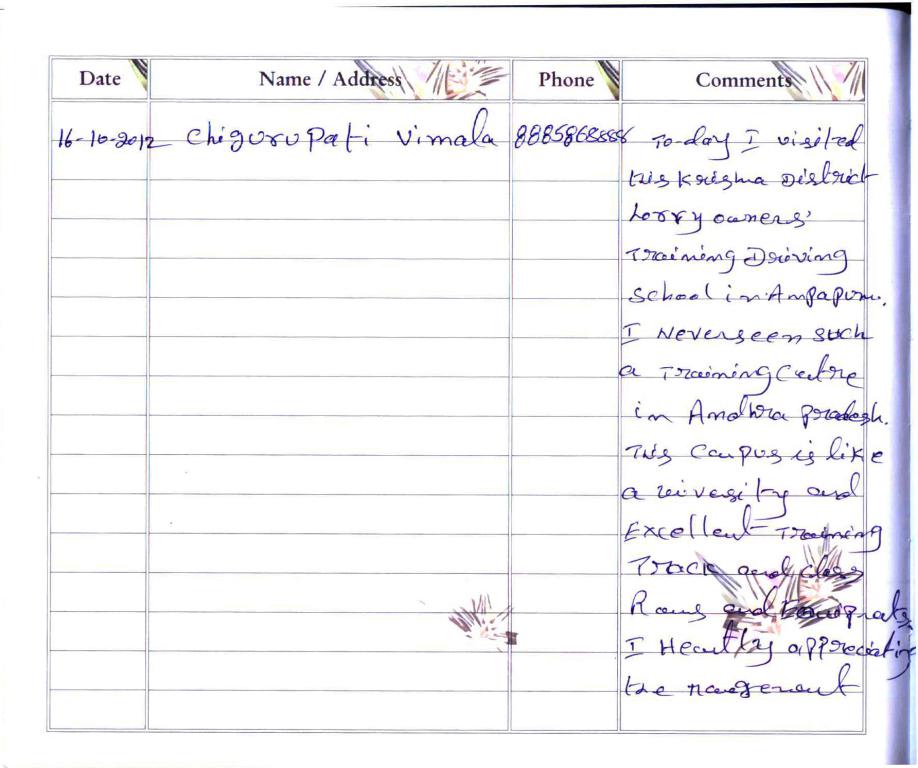 Date Name / Address Phone Comments
16-10-2012 Chigurupati Vimala 8885868888 To-day I visited
this Krishna District
Lorry owners'
Training Driving
School in Ampapuram.
I Never seen such
a Training Centre
in Andhra pradesh.
This Campus is like
a university and
Excellent Training
Track and class
Rooms and
I Heartly appreciating
the management